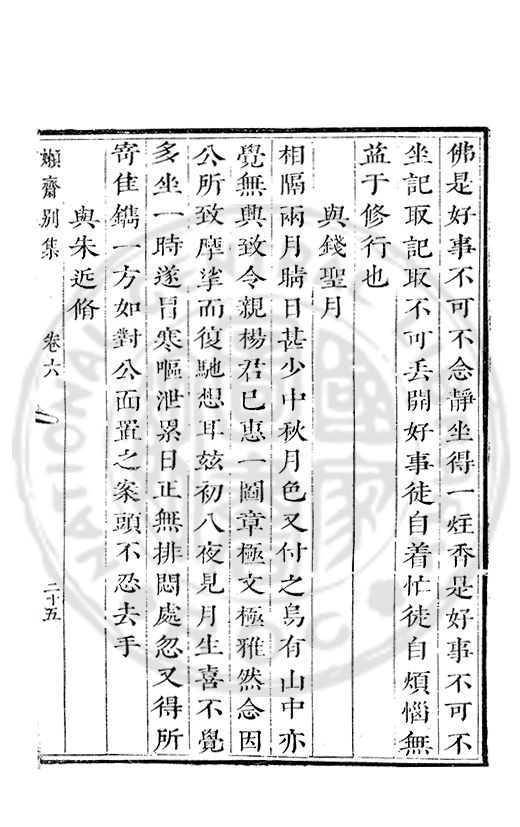 佛是好事不可不念靜坐得一炷香是好事不可不
坐記取記取不可丟開好事徒自着忙徒自煩惱無
益于修行也
與錢聖月
相隔兩月晴日甚少中秋月色又付之烏有山中亦
覺無興致令親楊君巳惠一圖章極文極雅然念因
公所致摩挲而復馳想耳玆初八夜見月生喜不覺
多坐一時遂冒寒嘔泄累日正無排悶處忽又得所
寄佳鐫一方如對公面置之案頭不忍去手
與朱近脩
嬾齋別集
卷六
二十五